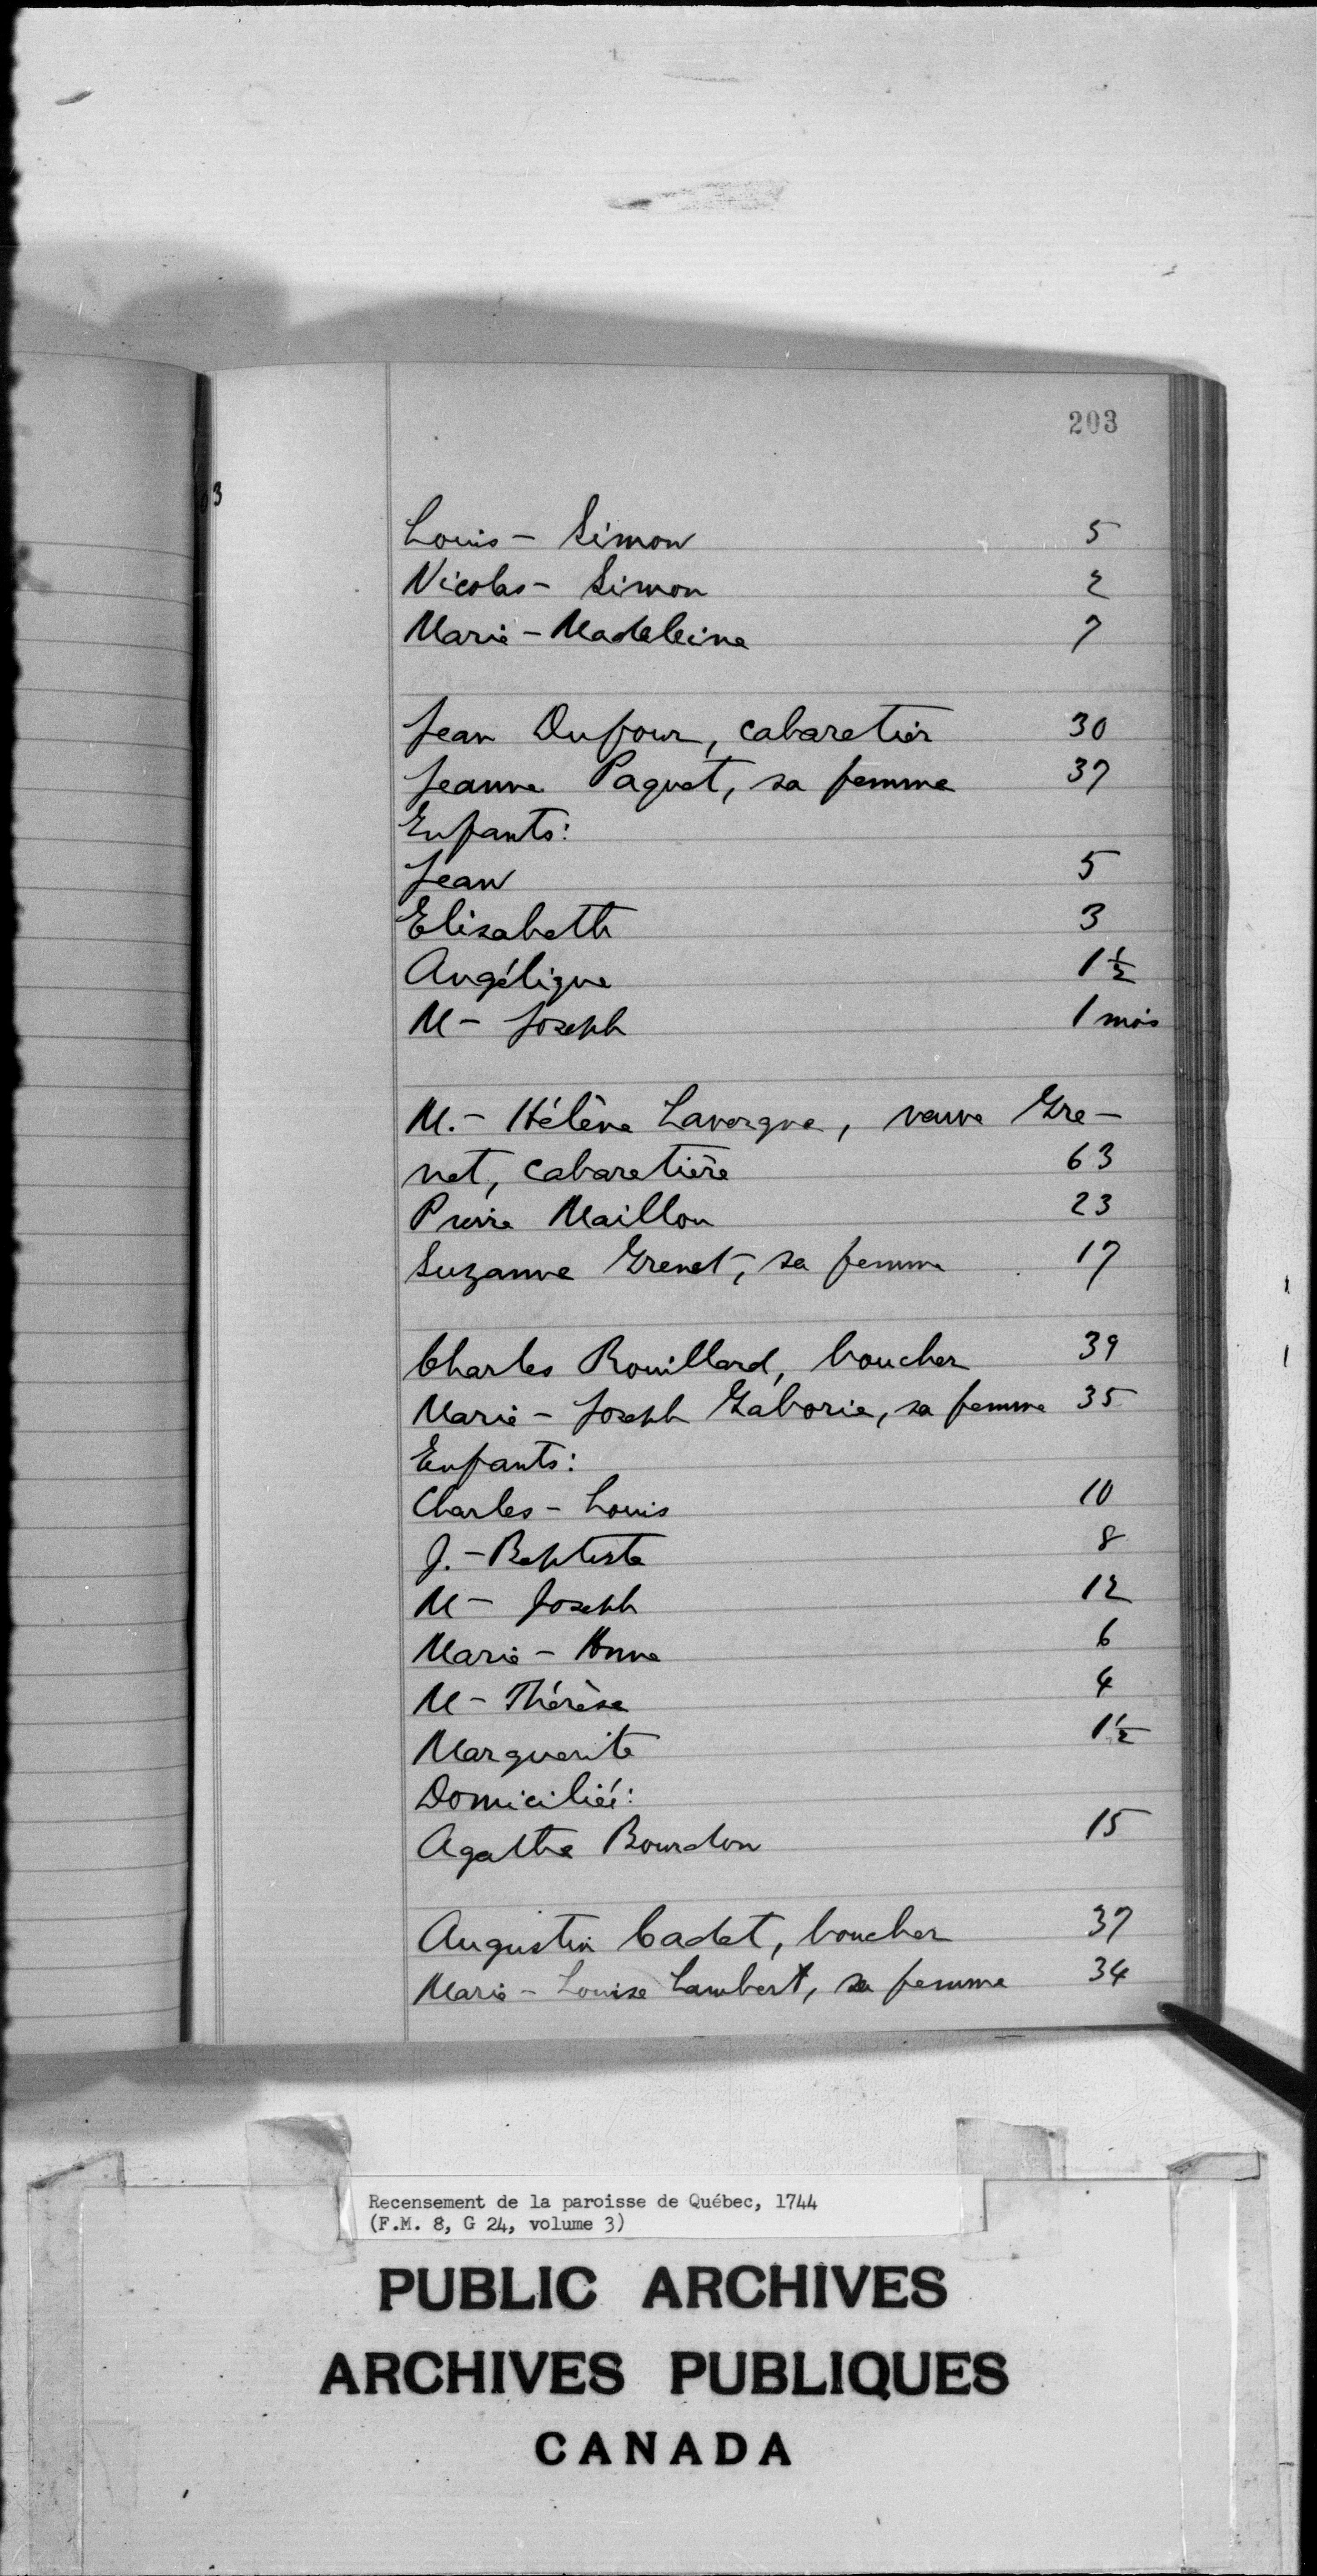 203
3
Louis - Simon 5
Nicolas - Simon 2
Marie - Madeleine 7
Jean Dufour, cabaretier 30
Jeanne Paquet, sa femme 37
Enfants:
Jean 5
Elisabeth 3
Angélique 1½
M - Joseph 1 mois
M. - Hélène Lavergne, veuve Gre-
net, cabaretière 63
Pierre Maillou 23
Suzanne Grenet, sa femme 17
Charles Rouillard, boucher 39
Marie - Joseph Gaborie, sa femme 35
Enfants:
Charles - Louis 10
J. - Baptiste 8
M - Joseph 12
Marie - Anne 6
M - Thérèse 4
Marguerite 1½
Domiciliée:
Agathe Bourdon 15
Augustin Cadet, boucher 37
Marie - Louise Lambert, sa femme 34
Recensement de la paroisse de Québec, 1744
(F.M. 8, G 24, volume 3)
PUBLIC ARCHIVES
ARCHIVES PUBLIQUES
CANADA